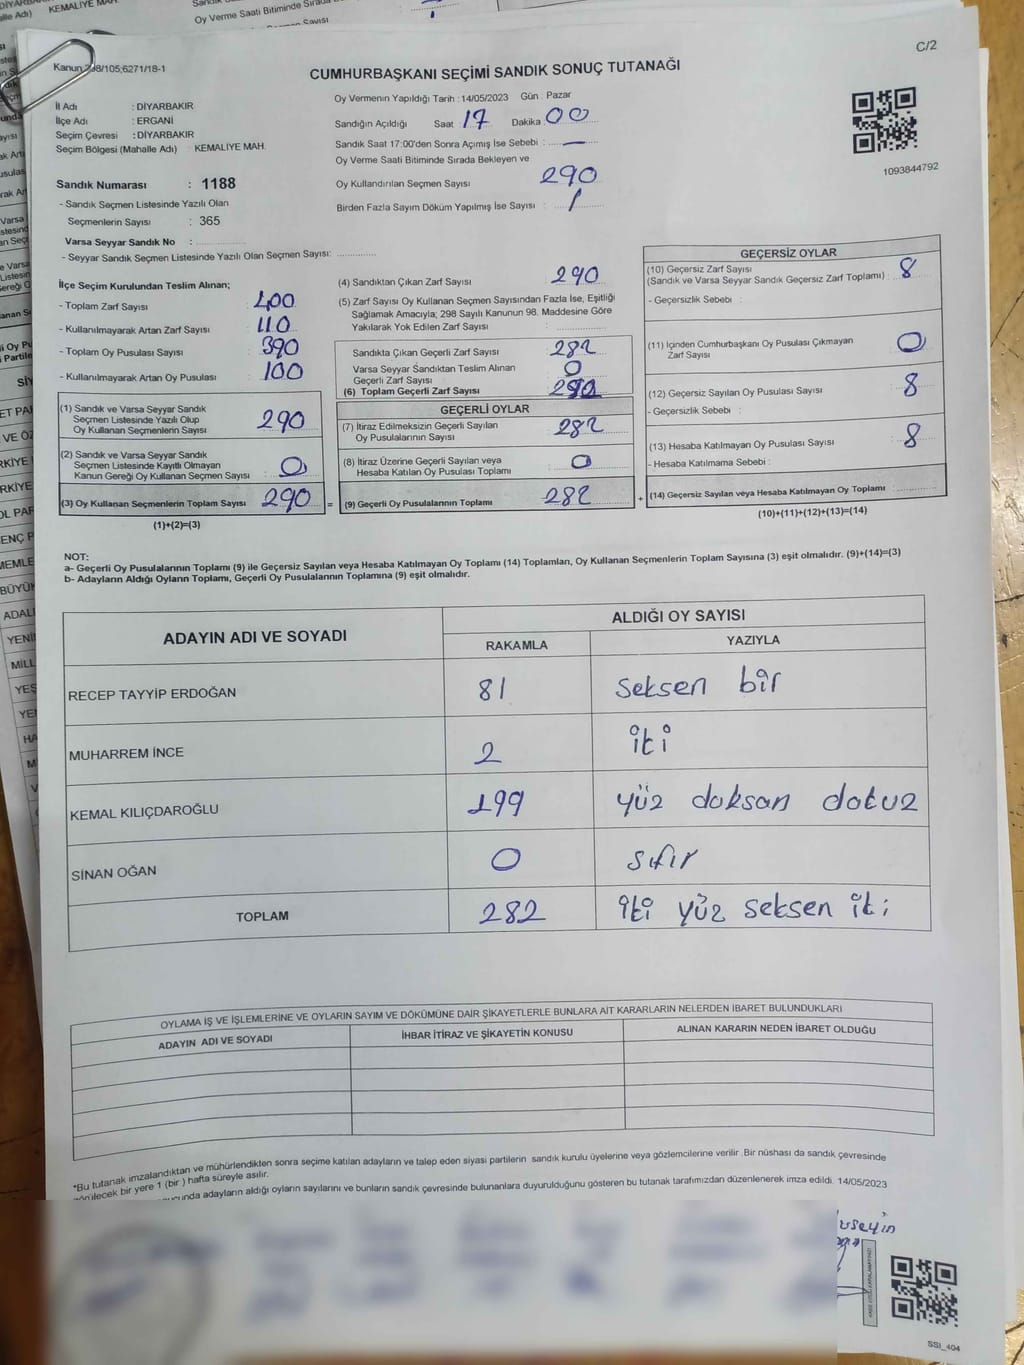 C/2
Kanun:298/105;6271/18-1
CUMHURBAŞKANI SEÇİMİ SANDIK SONUÇ TUTANAĞI
İl Adı : DİYARBAKIR
İlçe Adı : ERGANİ
Seçim Çevresi : DİYARBAKIR
Seçim Bölgesi (Mahalle Adı) KEMALİYE MAH.
Sandık Numarası : 1188
- Sandık Seçmen Listesinde Yazılı Olan
Seçmenlerin Sayısı : 365
Varsa Seyyar Sandık No :
- Seyyar Sandık Seçmen Listesinde Yazılı Olan Seçmen Sayısı:
Oy Vermenin Yapıldığı Tarih : 14/05/2023 Gün : Pazar
Sandığın Açıldığı Saat 17 Dakika 00
Sandık Saat 17:00'den Sonra Açımış İse Sebebi : —
Oy Verme Saati Bitiminde Sırada Bekleyen ve
Oy Kullandırılan Seçmen Sayısı 290
Birden Fazla Sayım Döküm Yapılmış İse Sayısı :
1093844792
İlçe Seçim Kurulundan Teslim Alınan;
- Toplam Zarf Sayısı 400
- Kullanılmayarak Artan Zarf Sayısı 110
- Toplam Oy Pusulası Sayısı 390
- Kullanılmayarak Artan Oy Pusulası 100
(1) Sandık ve Varsa Seyyar Sandık
Seçmen Listesinde Yazılı Olup
Oy Kullanan Seçmenlerin Sayısı 290
(2) Sandık ve Varsa Seyyar Sandık
Seçmen Listesinde Kayıtlı Olmayan
Kanun Gereği Oy Kullanan Seçmen Sayısı 0
(3) Oy Kullanan Seçmenlerin Toplam Sayısı 290
(1)+(2)=(3)
(4) Sandıktan Çıkan Zarf Sayısı 290
(5) Zarf Sayısı Oy Kullanan Seçmen Sayısından Fazla İse, Eşitliği
Sağlamak Amacıyla; 298 Sayılı Kanunun 98. Maddesine Göre
Yakılarak Yok Edilen Zarf Sayısı :
Sandıkta Çıkan Geçerli Zarf Sayısı 282
Varsa Seyyar Sandıktan Teslim Alınan
Geçerli Zarf Sayısı 0
(6) Toplam Geçerli Zarf Sayısı
GEÇERLİ OYLAR
(7) İtiraz Edilmeksizin Geçerli Sayılan
Oy Pusulalarının Sayısı 282
(8) İtiraz Üzerine Geçerli Sayılan veya
Hesaba Katılan Oy Pusulası Toplamı 0
= (9) Geçerli Oy Pusulalarının Toplamı 282
GEÇERSİZ OYLAR
(10) Geçersiz Zarf Sayısı
(Sandık ve Varsa Seyyar Sandık Geçersiz Zarf Toplamı) : 8
- Geçersizlik Sebebi :
(11) İçinden Cumhurbaşkanı Oy Pusulası Çıkmayan
Zarf Sayısı 0
(12) Geçersiz Sayılan Oy Pusulası Sayısı 8
- Geçersizlik Sebebi :
(13) Hesaba Katılmayan Oy Pusulası Sayısı 8
- Hesaba Katılmama Sebebi :
+ (14) Geçersiz Sayılan veya Hesaba Katılmayan Oy Toplamı
(10)+(11)+(12)+(13)=(14)
NOT:
a- Geçerli Oy Pusulalarının Toplamı (9) ile Geçersiz Sayılan veya Hesaba Katılmayan Oy Toplamı (14) Toplamları, Oy Kullanan Seçmenlerin Toplam Sayısına (3) eşit olmalıdır. (9)+(14)=(3)
b- Adayların Aldığı Oyların Toplamı, Geçerli Oy Pusulalarının Toplamına (9) eşit olmalıdır.
ADAYIN ADI VE SOYADI
ALDIĞI OY SAYISI
RAKAMLA YAZIYLA
RECEP TAYYİP ERDOĞAN 81 seksen bir
MUHARREM İNCE 2 iki
KEMAL KILIÇDAROĞLU 199 yüz doksan dokuz
SİNAN OĞAN 0 sıfır
TOPLAM 282 iki yüz seksen iki
OYLAMA İŞ VE İŞLEMLERİNE VE OYLARIN SAYIM VE DÖKÜMÜNE DAİR ŞİKAYETLERLE BUNLARA AİT KARARLARIN NELERDEN İBARET BULUNDUKLARI
ADAYIN ADI VE SOYADI İHBAR İTİRAZ VE ŞİKAYETİN KONUSU ALINAN KARARIN NEDEN İBARET OLDUĞU
*Bu tutanak imzalandıktan ve mühürlendikten sonra seçime katılan adayların ve talep eden siyasi partilerin sandık kurulu üyelerine veya gözlemcilerine verilir .Bir nüshası da sandık çevresinde
görülecek bir yere 1 (bir ) hafta süreyle asılır.
adayların aldığı oyların sayılarını ve bunların sandık çevresinde bulunanlara duyurulduğunu gösteren bu tutanak tarafımızdan düzenlenerek imza edildi. 14/05/2023
SSI_404